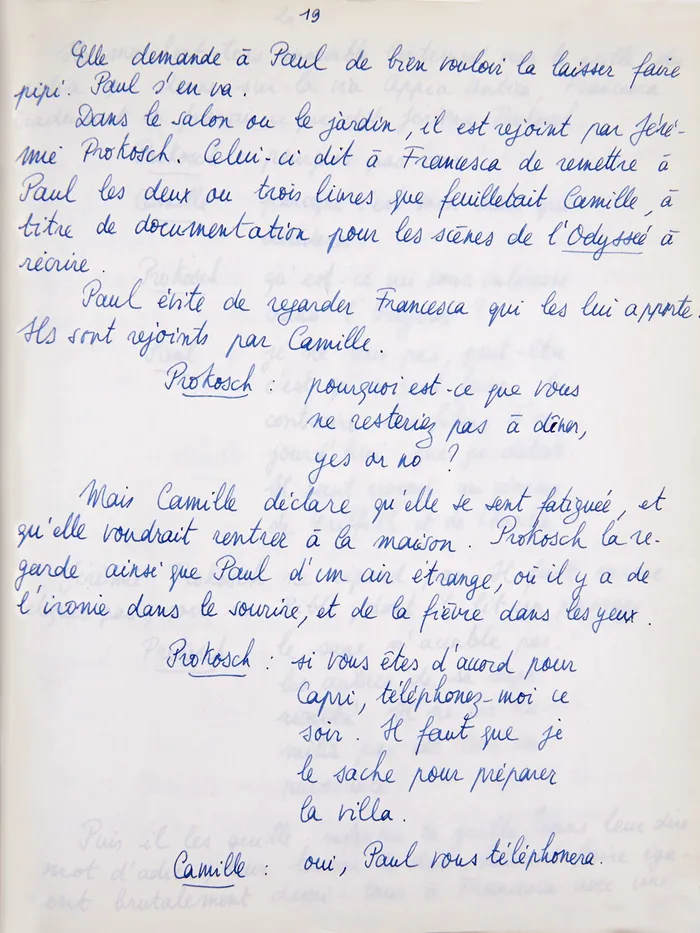 19
Elle demande à Paul de bien vouloir la laisser faire
pipi. Paul s'en va.
Dans le salon ou le jardin, il est rejoint par Jéré-
mie Prokosch. Celui-ci dit à Francesca de remettre à
Paul les deux ou trois livres que feuilletait Camille, à
titre de documentation pour les scènes de l'Odyssée à
récrire.
Paul évite de regarder Francesca qui les lui apporte.
Ils sont rejoints par Camille.
Prokosch : pourquoi est-ce que vous
ne resteriez pas à dîner,
yes or no ?
Mais Camille déclare qu'elle se sent fatiguée, et
qu'elle voudrait rentrer à la maison. Prokosch la re-
garde ainsi que Paul d'un air étrange, où il y a de
l'ironie dans le sourire, et de la fièvre dans les yeux.
Prokosch : si vous êtes d'acord pour
Capri, téléphonez-moi ce
soir. Il faut que je
le sache pour préparer
la villa.
Camille : oui, Paul vous téléphonera.